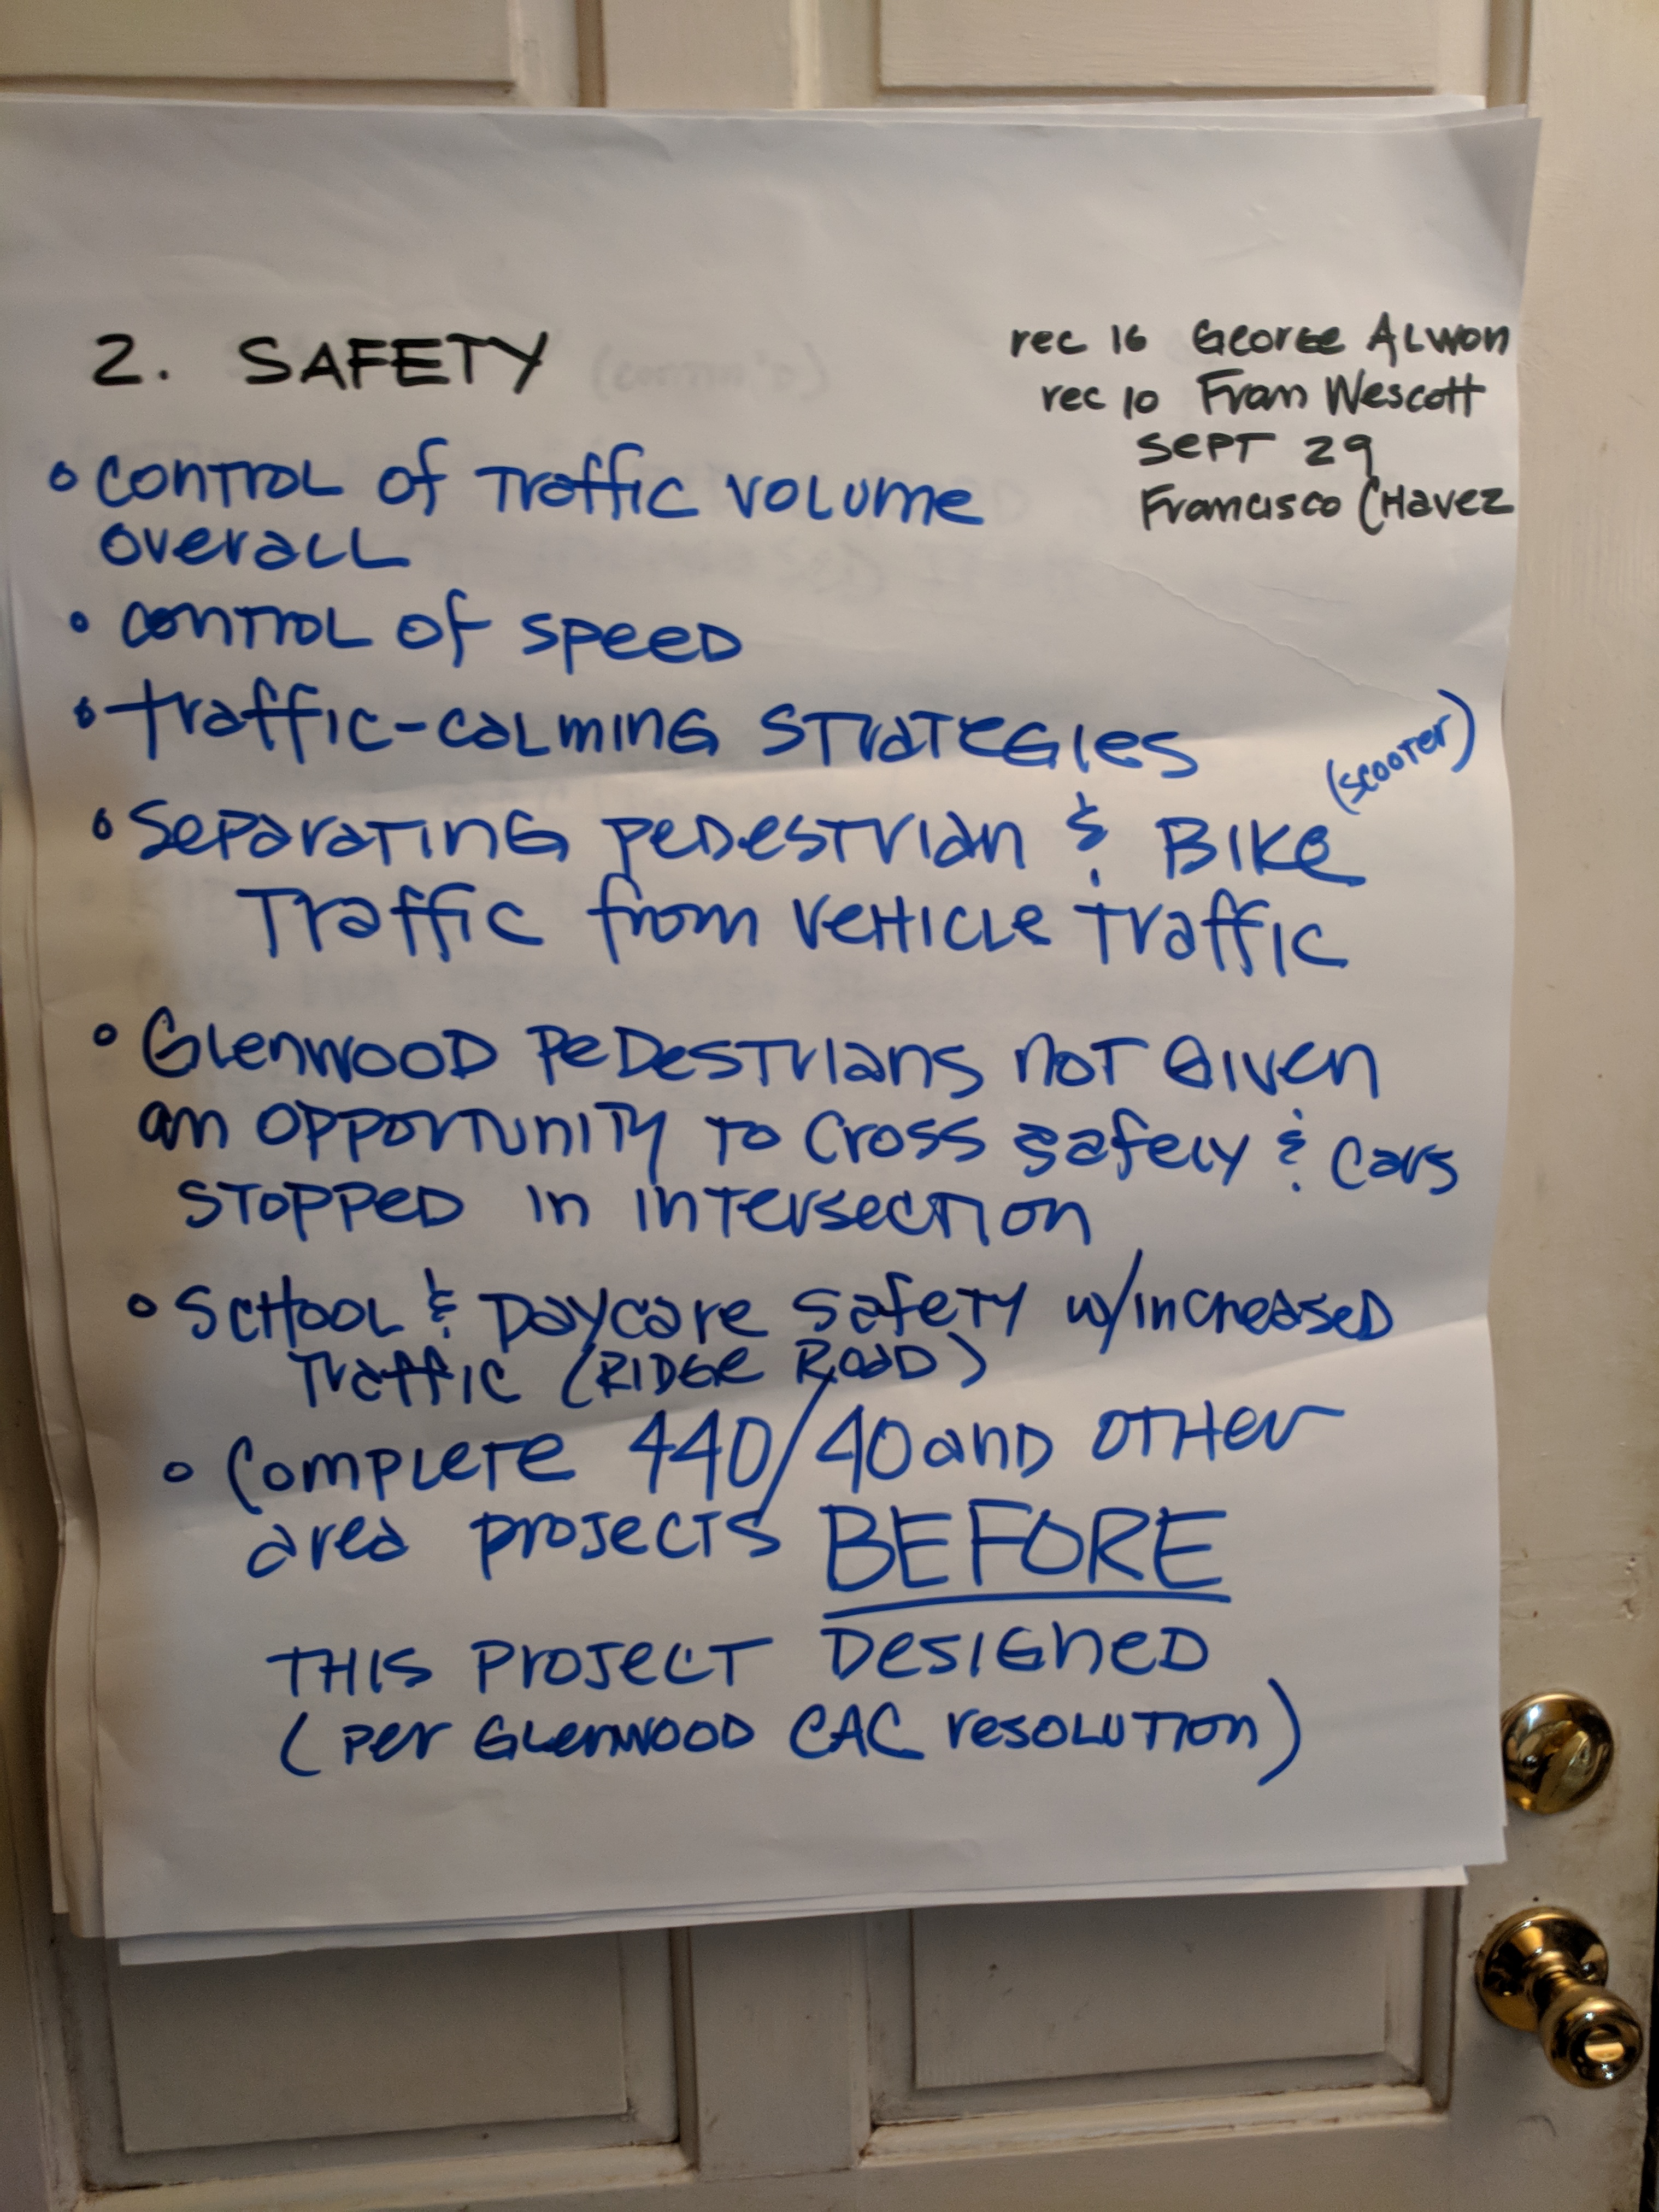 2. SAFETY
rec 16 George Alwon
rec 10 Fran Wescott
Sept 29
Francisco Chavez
• Control of traffic volume
overall
• control of speed
• traffic-calming strategies
(scooter)
• Separating pedestrian & Bike
Traffic from vehicle traffic
• Glenwood Pedestrians not given
an opportunity to cross safely & cars
stopped in intersection
• School & Daycare safety w/increased
Traffic (Ridge Road)
• Complete 440/40 and other
area projects BEFORE
This project Designed
(per Glenwood CAC resolution)